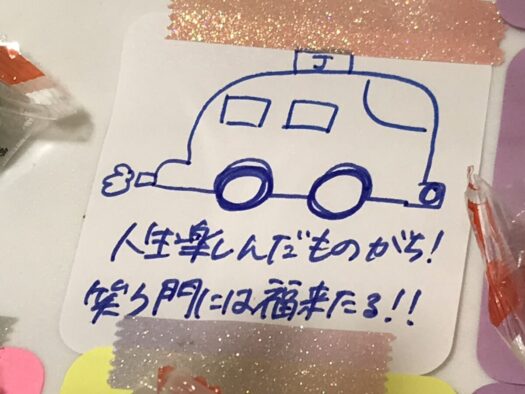 J
人生楽しんだものがち!
笑う門には福来たる!!